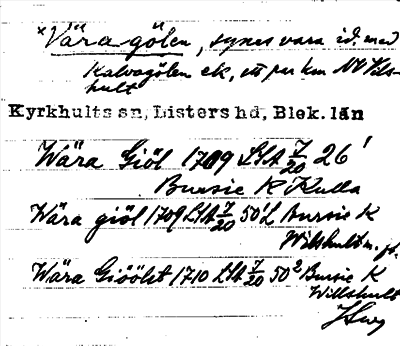 *"Väragölen", synes vara id. med
Kalvagölen ek, ett par km NV Vils-
hult
Kyrkhults sn, Listers hd, Blek. län
Wära Giöl 1709 LSA 7/20 26¹
Bursie K Kulla
Wära giöl 1709 LSA 7/20 50¹ Bursie K
Wilshult
Wära Giöölet 1710 LSA 7/20 50² Bursie K
Willshult